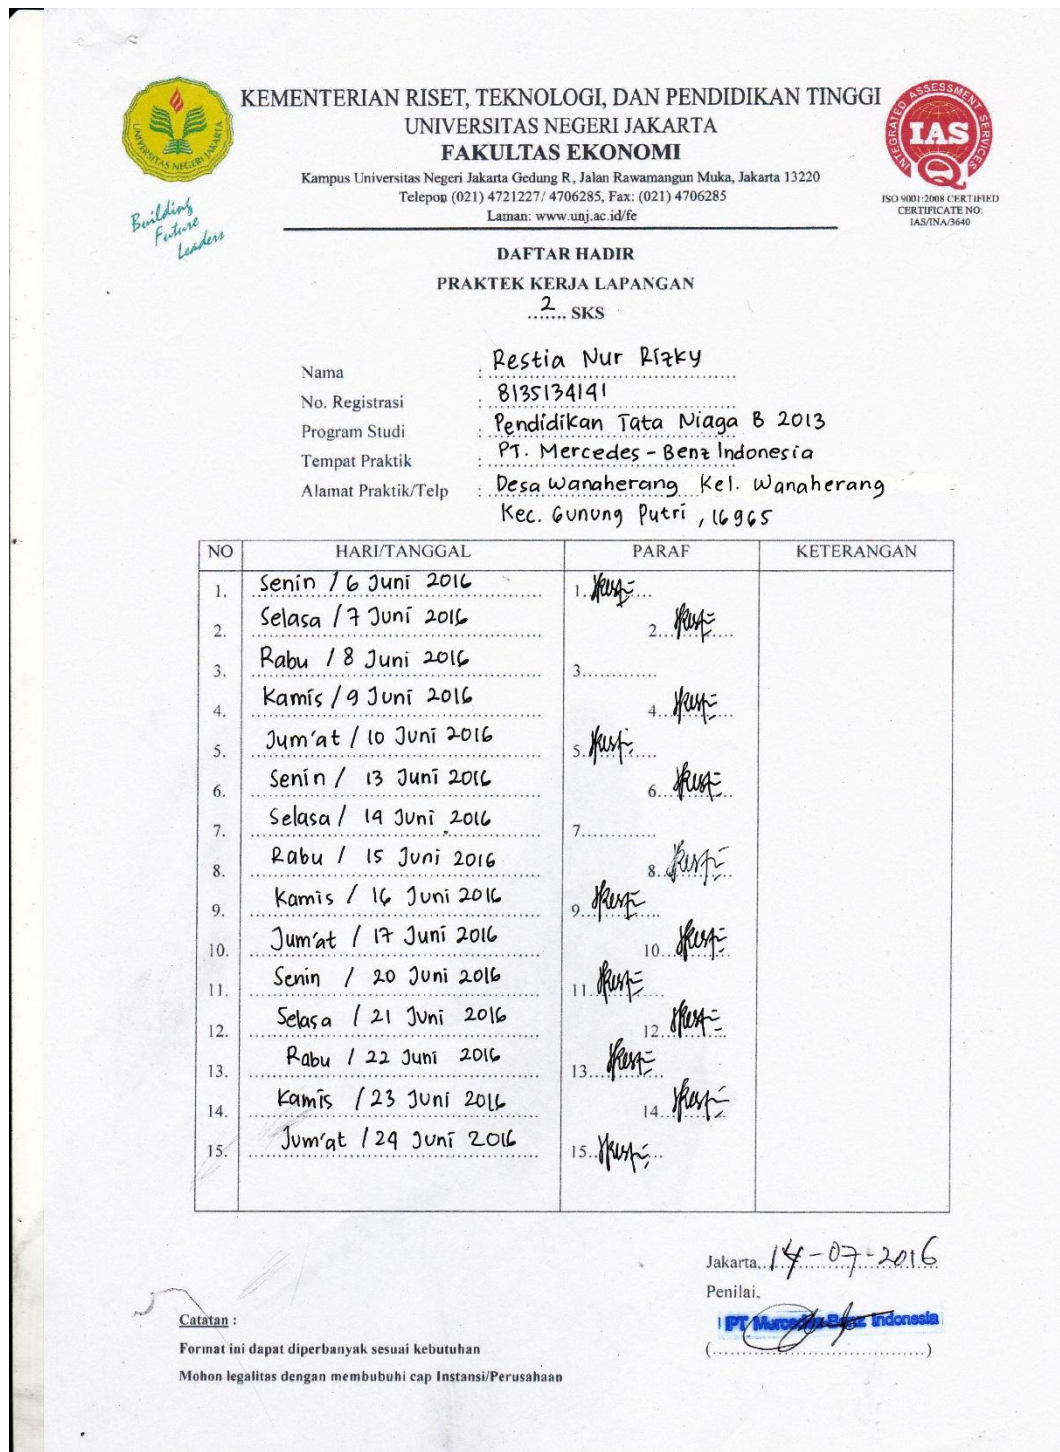 KEMENTERIAN RISET, TEKNOLOGI, DAN PENDIDIKAN TINGGI
UNIVERSITAS NEGERI JAKARTA
FAKULTAS EKONOMI
Kampus Universitas Negeri Jakarta Gedung R, Jalan Rawamangun Muka, Jakarta 13220
Telepon (021) 4721227/ 4706285, Fax: (021) 4706285
Laman: www.unj.ac.id/fe
UNIVERSITAS NEGERI JAKARTA
Building
Future
Leaders
INTEGRATED ASSESSMENT SERVICES
IAS
ISO 9001:2008 CERTIFIED
CERTIFICATE NO:
IAS/INA/3640
DAFTAR HADIR
PRAKTEK KERJA LAPANGAN
...2... SKS
Nama : Restia Nur Rizky
No. Registrasi : 8135134141
Program Studi : Pendidikan Tata Niaga B 2013
Tempat Praktik : PT. Mercedes-Benz Indonesia
Alamat Praktik/Telp : Desa Wanaherang Kel. Wanaherang
Kec. Gunung Putri, 16965
NO HARI/TANGGAL PARAF KETERANGAN
1. Senin / 6 Juni 2016 1.
2. Selasa / 7 Juni 2016 2.
3. Rabu / 8 Juni 2016 3.
4. Kamis / 9 Juni 2016 4.
5. Jum'at / 10 Juni 2016 5.
6. Senin / 13 Juni 2016 6.
7. Selasa / 14 Juni 2016 7.
8. Rabu / 15 Juni 2016 8.
9. Kamis / 16 Juni 2016 9.
10. Jum'at / 17 Juni 2016 10.
11. Senin / 20 Juni 2016 11.
12. Selasa / 21 Juni 2016 12.
13. Rabu / 22 Juni 2016 13.
14. Kamis / 23 Juni 2016 14.
15. Jum'at / 24 Juni 2016 15.
Jakarta, 14-07-2016
Penilai,
PT Mercedes-Benz Indonesia
(....................................)
Catatan :
Format ini dapat diperbanyak sesuai kebutuhan
Mohon legalitas dengan membubuhi cap Instansi/Perusahaan